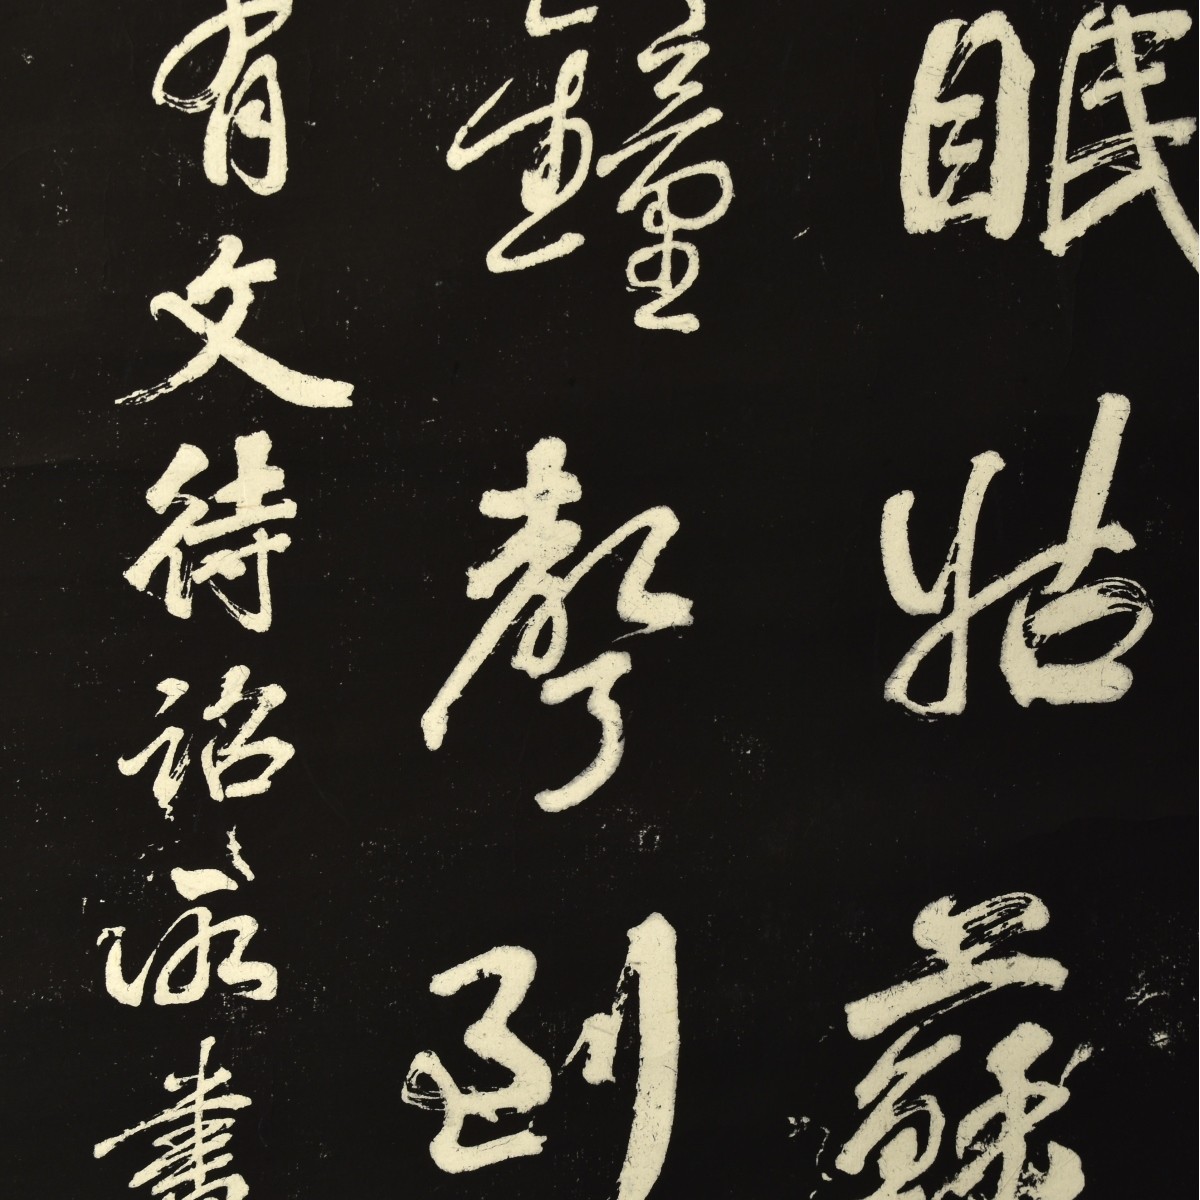 眠姑蘇
鐘聲到
有文待詔所書